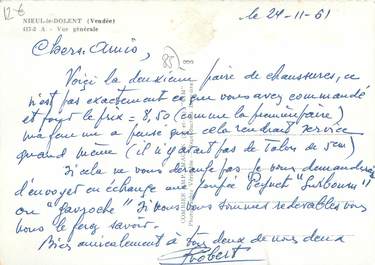 12 €
NIEUL-le-DOLENT (Vendée)
417-2 A - Vue générale
le 24-11-61
85)
Chers Amis,
Voici la deuxième paire de chaussures, ce
n'est pas exactement ce que vous avez commandé
et pour le prix = 8,50 (comme la première paire)
ma femme a pensé que cela rendrait service
quand même (il n'y avait pas de talon de 5cm)
Si cela ne vous dérange pas je vous demanderai
d'envoyer en échange une Peynet "
ou "Gavroche" Si nous vous sommes redevables vous
nous le ferez savoir.
Bien amicalement à tous deux de nous deux
Robert